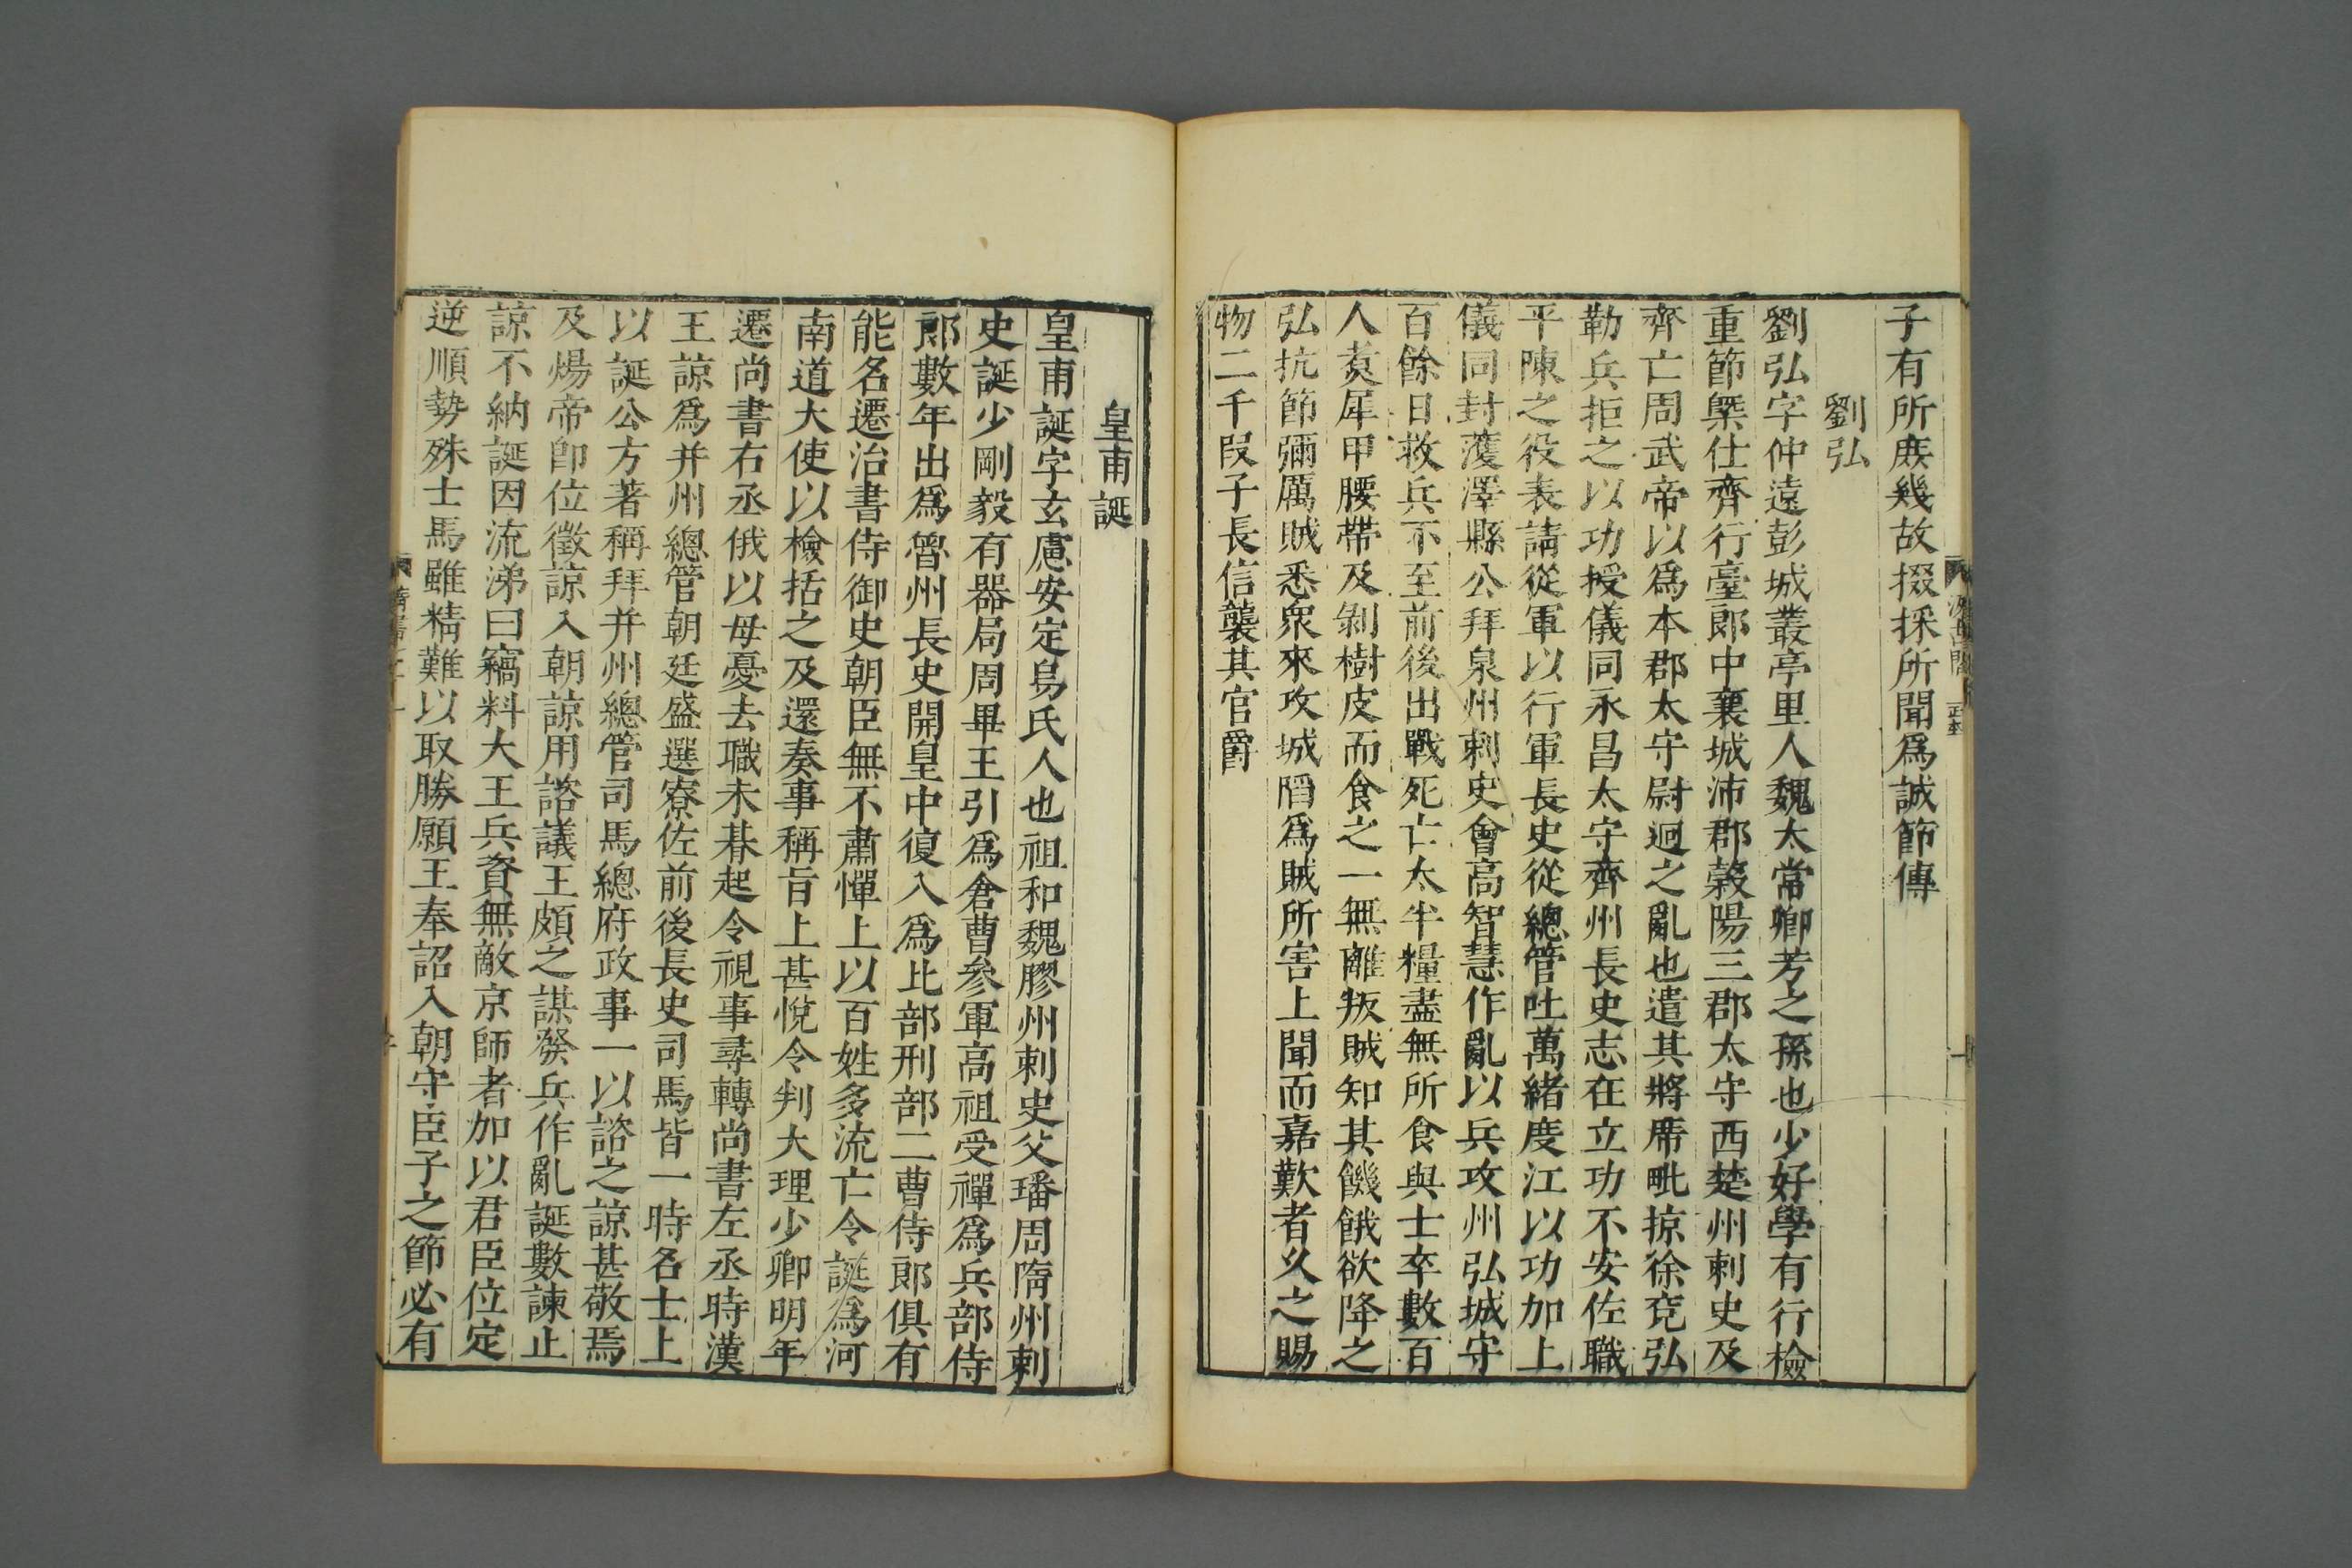 子有所庻幾故掇採所聞爲誠節傳
劉弘
劉弘字仲遠彭城叢亭里人魏太常卿芳之孫也少好學有行檢
重節槩仕齊行臺郎中襄城沛郡榖陽三郡太守西楚州刺史及
齊亡周武帝以爲本郡太守尉逈之亂也遣其將席毗掠徐兗弘
勒兵拒之以功授儀同永昌太守齊州長史志在立功不安佐職
平陳之役表請從軍以行軍長史從總管吐萬緒度江以功加上
儀同封濩澤縣公拜泉州刺史會高智慧作亂以兵攻州弘城守
百餘日救兵不至前後出戰死亡太半糧盡無所食與士卒數百
人煮犀甲腰帶及剝樹皮而食之一無離叛賊知其饑餓欲降之
弘抗節彌厲賊悉衆來攻城陷爲賊所害上聞而嘉歎者乆之賜
物二千段子長信襲其官爵
皇甫誕
皇甫誕字玄慮安定烏氏人也祖和魏膠州刺史父璠周隋州刺
史誕少剛毅有器局周畢王引爲倉曹參軍高祖受禪爲兵部侍
郎數年出爲魯州長史開皇中復入爲比部刑部二曹侍郎俱有
能名遷治書侍御史朝臣無不肅憚上以百姓多流亡令誕爲河
南道大使以檢括之及還奏事稱旨上甚悅令判大理少卿明年
遷尚書右丞俄以母憂去職未朞起令視事尋轉尚書左丞時漢
王諒爲并州總管朝廷盛選寮佐前後長史司馬皆一時名士上
以誕公方著稱拜并州總管司馬總府政事一以諮之諒甚敬焉
及煬帝卽位徵諒入朝諒用諮議王頗之謀發兵作亂誕數諫止
諒不納誕因流涕曰竊料大王兵資無敵京師者加以君臣位定
逆順勢殊士馬雖精難以取勝願王奉詔入朝守臣子之節必有